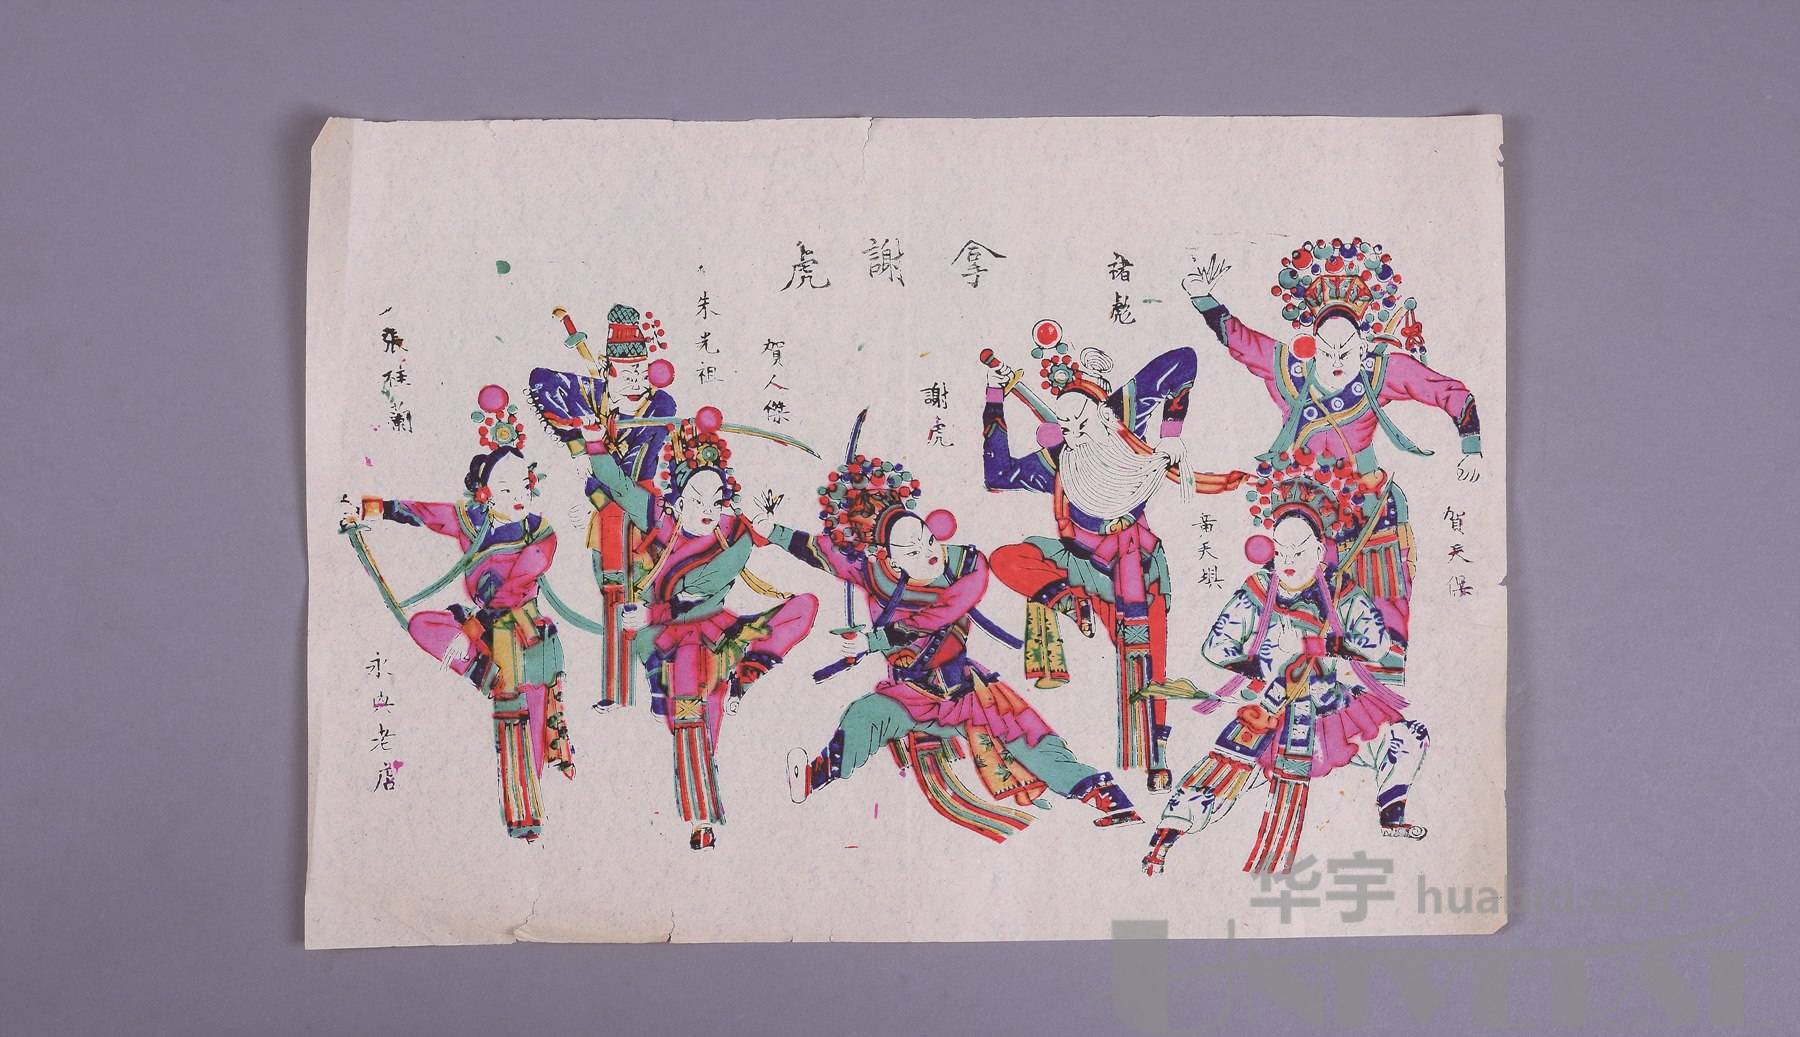 拿謝虎
賀天保
褚彪
黄天垻
謝虎
賀人傑
朱光祖
張桂蘭
永興老店
华宇 huabid.com